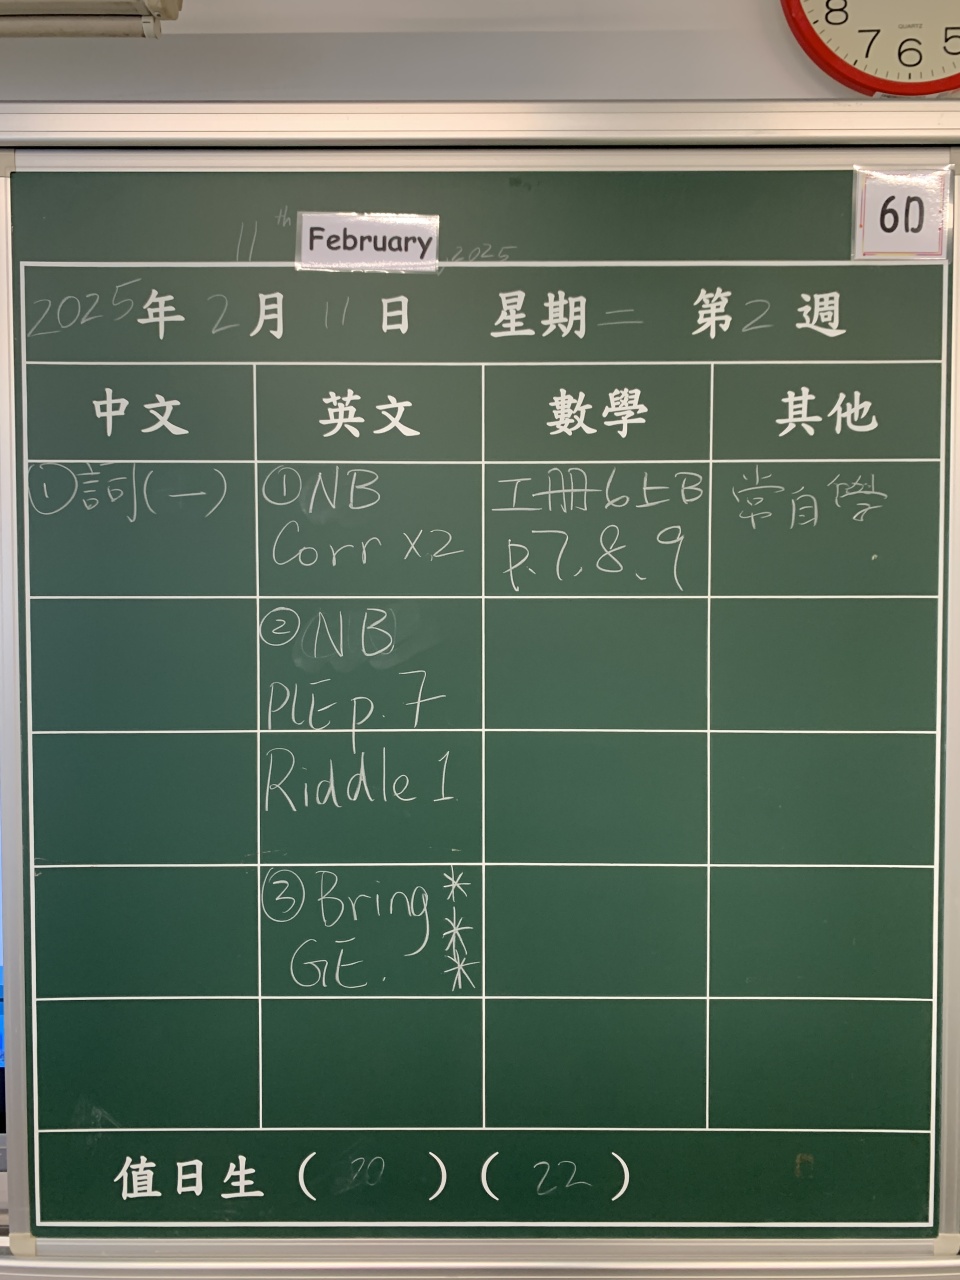 8 7 6 5
QUARTZ
6D
11th February, 2025
2025年2月11日 星期二 第2週
中文 英文 數學 其他
①詞(一)
①NB
Corr x2
②NB
PLE p.7
Riddle 1
③Bring ***
GE.
工冊6上B
p.7、8、9
常自學
值日生(20)(22)